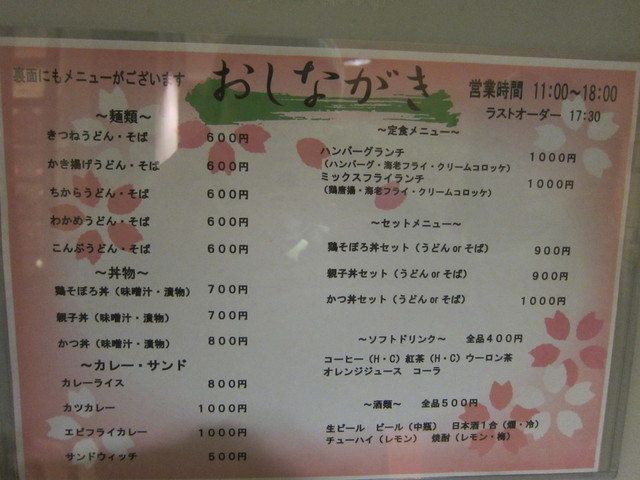 裏面にもメニューがございます
おしながき
営業時間 11:00～18:00
ラストオーダー 17:30
～麺類～
きつねうどん・そば 600円
かき揚げうどん・そば 600円
ちからうどん・そば 600円
わかめうどん・そば 600円
こんぶうどん・そば 600円
～丼物～
鶏そぼろ丼（味噌汁・漬物） 700円
親子丼（味噌汁・漬物） 700円
かつ丼（味噌汁・漬物） 800円
～カレー・サンド
カレーライス 800円
カツカレー 1000円
エビフライカレー 1000円
サンドウィッチ 500円
～定食メニュー～
ハンバーグランチ 1000円
（ハンバーグ・海老フライ・クリームコロッケ）
ミックスフライランチ 1000円
（鶏唐揚・海老フライ・クリームコロッケ）
～セットメニュー～
鶏そぼろ丼セット（うどん or そば） 900円
親子丼セット（うどん or そば） 900円
かつ丼セット（うどん or そば） 1000円
～ソフトドリンク～ 全品400円
コーヒー（H・C）紅茶（H・C）ウーロン茶
オレンジジュース コーラ
～酒類～ 全品500円
生ビール ビール（中瓶） 日本酒1合（燗・冷）
チューハイ（レモン） 焼酎（レモン・梅）